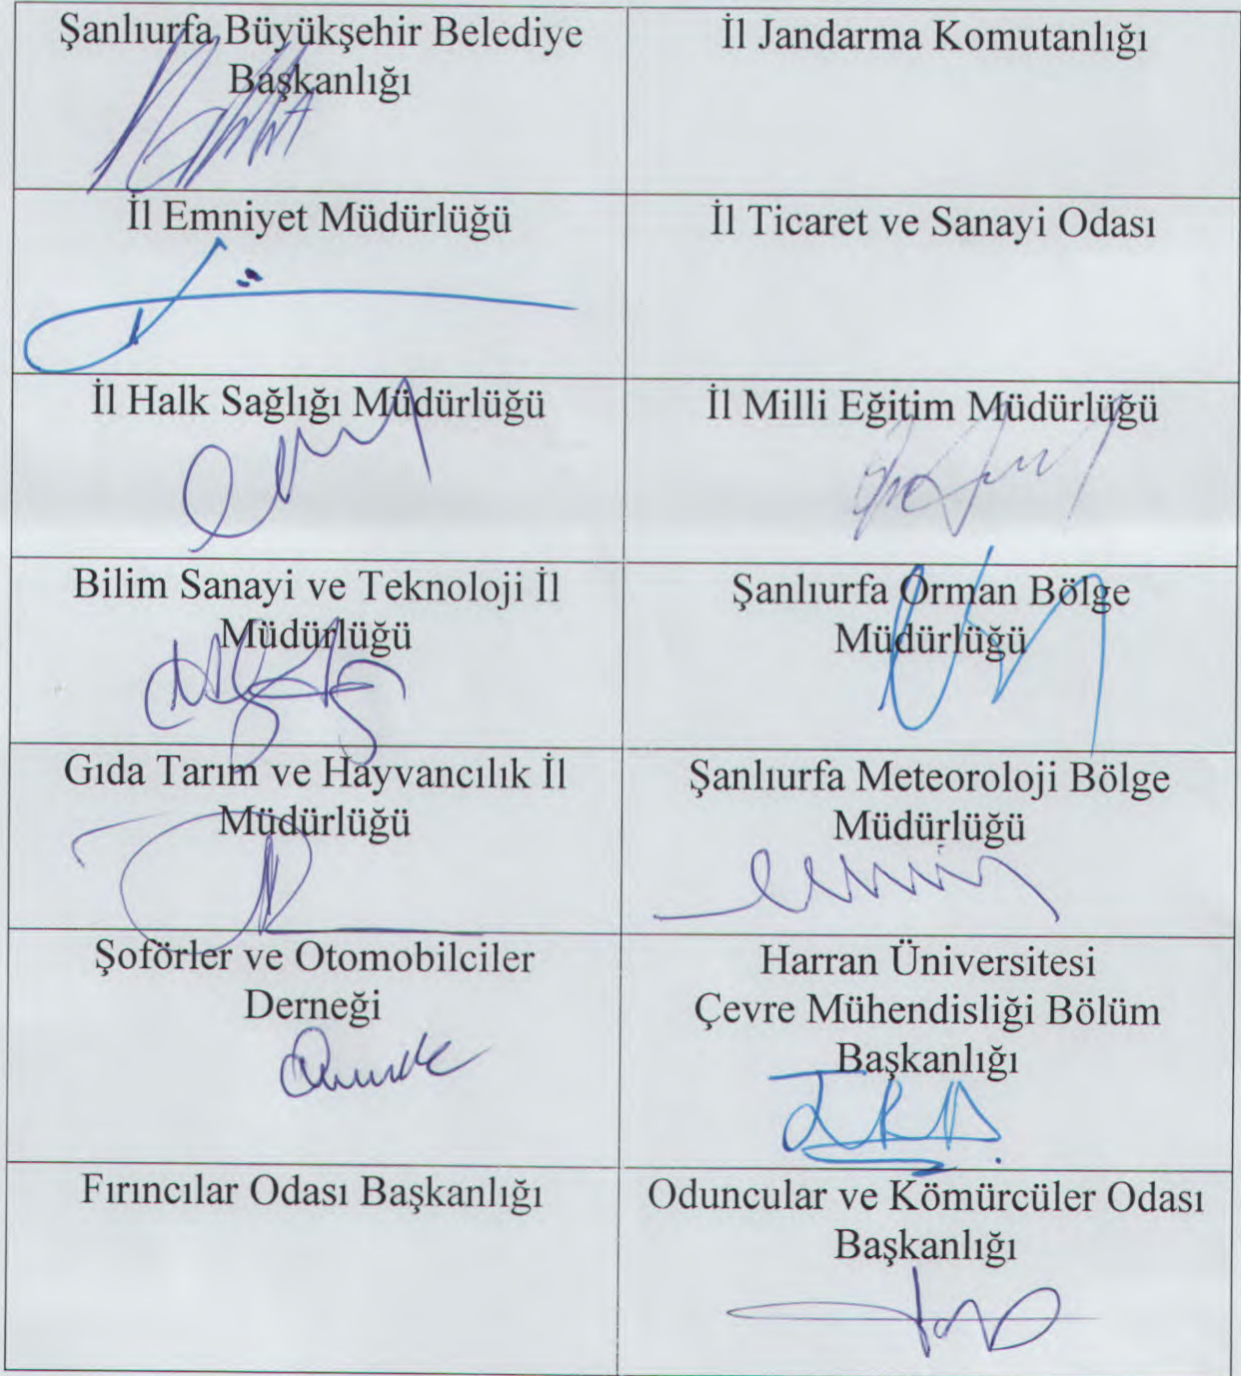 Şanlıurfa Büyükşehir Belediye
Başkanlığı
İl Jandarma Komutanlığı
İl Emniyet Müdürlüğü
İl Ticaret ve Sanayi Odası
İl Halk Sağlığı Müdürlüğü
İl Milli Eğitim Müdürlüğü
Bilim Sanayi ve Teknoloji İl
Müdürlüğü
Şanlıurfa Orman Bölge
Müdürlüğü
Gıda Tarım ve Hayvancılık İl
Müdürlüğü
Şanlıurfa Meteoroloji Bölge
Müdürlüğü
Şoförler ve Otomobilciler
Derneği
Harran Üniversitesi
Çevre Mühendisliği Bölüm
Başkanlığı
Fırıncılar Odası Başkanlığı
Oduncular ve Kömürcüler Odası
Başkanlığı